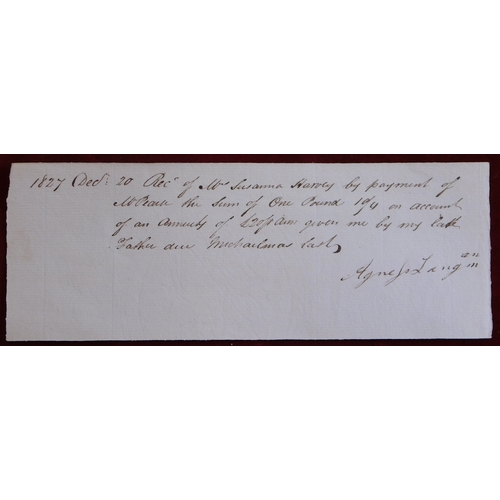 1827 Decr: 20 Recd of Mrs Susanna Harvey by payment of
the Sum of One Pound 19/4 on account
of an Annuity of £20 p Ann given me by my late
Father due Michaelmas Last
Agness